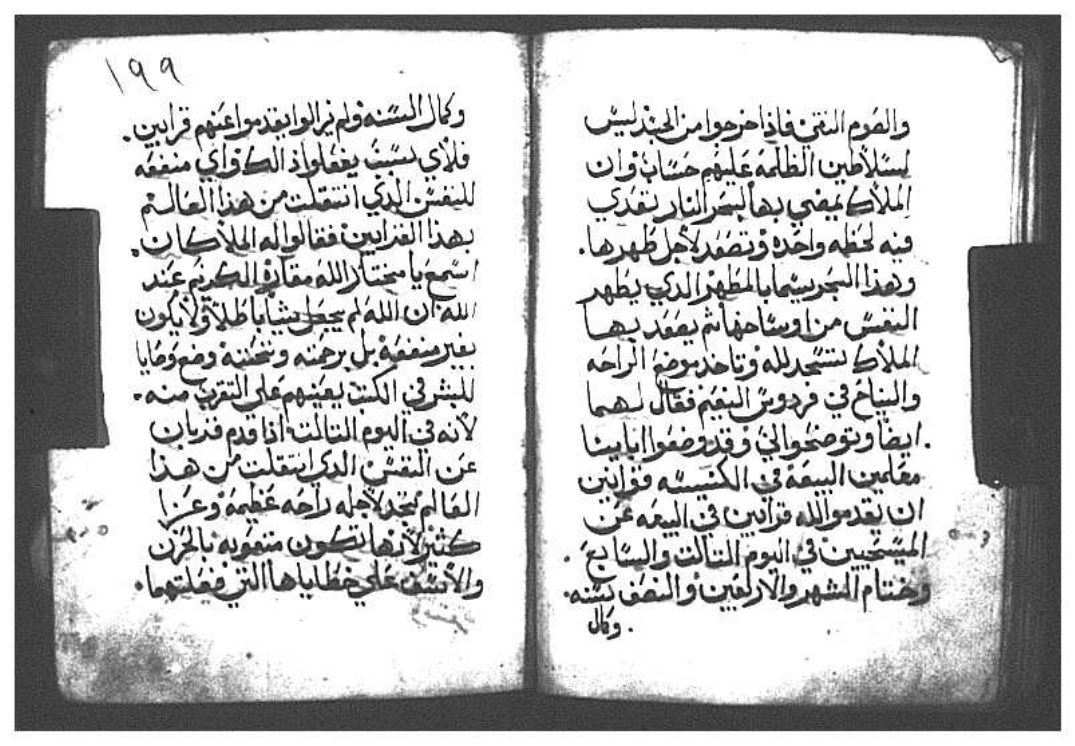 والصوم النقي فاذا خرجوا من الجند ليس
لسلاطين الظلمه عليهم حساب وان
الملاك يمضي بها لبحر النار تعدي
فيه لحظه واحده وتصعد لاجل طهرها.
وهذا البحر يسما بالمطهر الذي يطهر
النفس من اوساخها ثم يصعد بها
الملاك تسجد لله وتاخد موضع الراحه
والنياح في فردوس النعيم فقال لهما
ايضا وتوضحوا لي وقد وضعوا ابايينا
معلمين البيعه في الكنيسه قوانين
ان يقدموا لله قرابين في البيعه عن
المسيحيين في اليوم التالت والسابع.
وختام الشهر والاربعين والنصف سنه.
وكال
١٩٩
وكمال السنه ولم يزالوا يقدموا عنهم قرابين.
فلاي سبب يفعلوا ذالك واي منفعه
للنفس الذي انتقلت من هذا العالم
بهذا القرابين فقالوا له الملاكان.
اسمع يا مختار الله مقاره الكريم عند
الله ان الله لم يجعل شيا باطلا ولا يكون
بغير منفعه بل برحمته وتحننه وضع وصايا
للبشر في الكتب يعينهم على التقرب منه.
لانه في اليوم التالت اذا قدم قربان
عن النفس الذي انتقلت من هذا
العالم تجد لاجله راحه عظيمه وعزا
كثير لانها تكون متعوبه بالحزن
والاسف علي خطاياها التي فعلتهما.